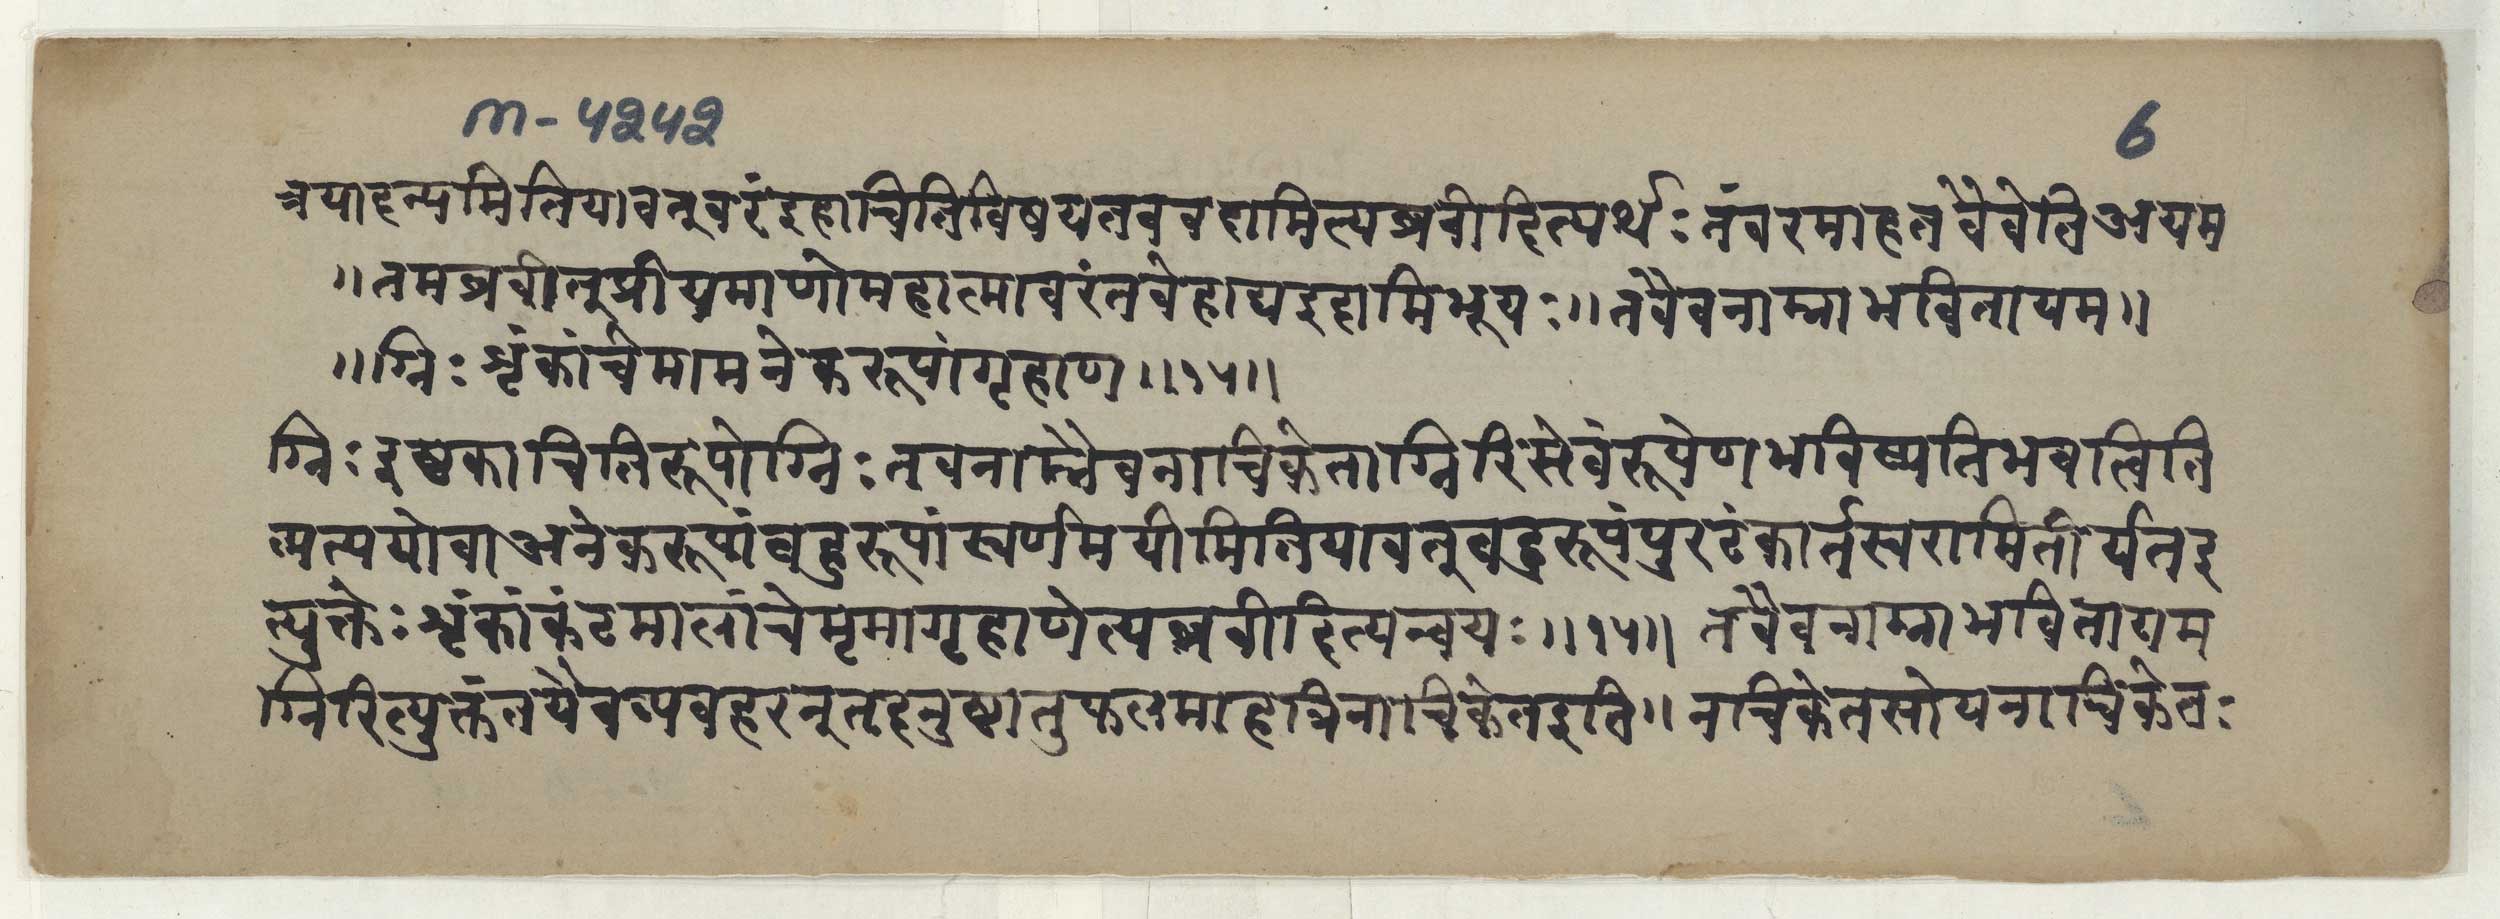 m-५२५२ 6
न्नयादन्यमितियावत्तूवरंइहाचितिविषयेतववदामित्यब्रवीदित्यर्थः तंवरमाहतवैवेतिअयम
॥तमब्रवीत्प्रीयमाणोमहात्मावरंतवेहाद्यददामिभूयः॥तवैवनाम्नाभवितायम॥
॥ग्निः शृंकांचेमामनेकरूपांगृहाण॥१५॥
ग्निः इष्टकाचितिरूपोग्निः तवनाम्नैवनाचिकेताग्निरित्सेवंरूपेणभविष्यतिभवत्विति
मत्पयोवाअनेकरूपांबहुरूपांस्वर्णमयीमितियावत्बहुरूपंपुरटंकार्तस्वरामितीर्यतइ
त्युक्तेः शृंकांकंठमालांचेमृमागृहाणेत्यब्रवीदित्यन्वयः॥१५॥ तवैवनाम्नाभवितायम
ग्निरित्युक्तंतथैवव्यवहरन्तदनुष्ठातुफलमाहत्रिनाचिकेतइति॥ नचिकेतसोयनाचिकेतः